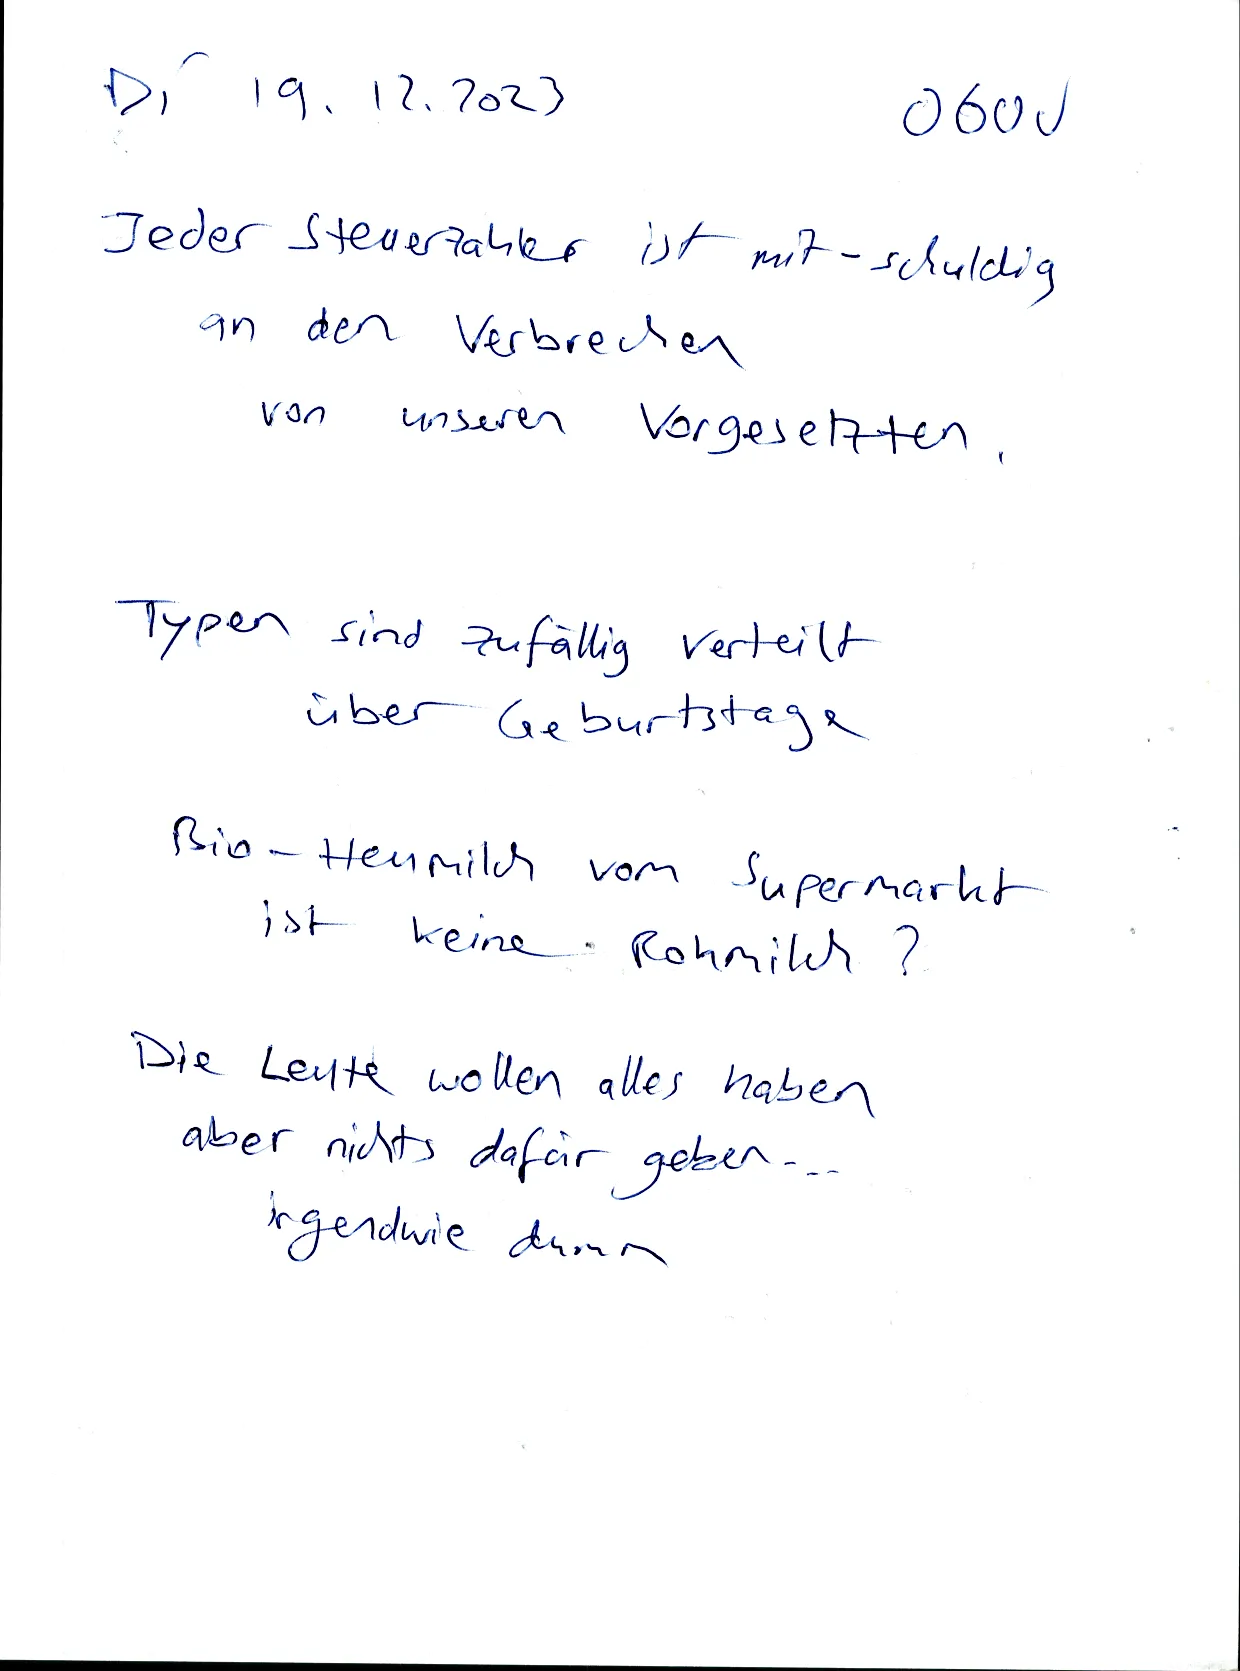 Di 19.12.2023 0600
Jeder Steuerzahler ist mit-schuldig
an den Verbrechen
von unseren Vorgesetzten.
Typen sind zufällig verteilt
über Geburtstage
Bio-Heumilch vom Supermarkt
ist keine Rohmilch?
Die Leute wollen alles haben
aber nichts dafür geben...
irgendwie dumm